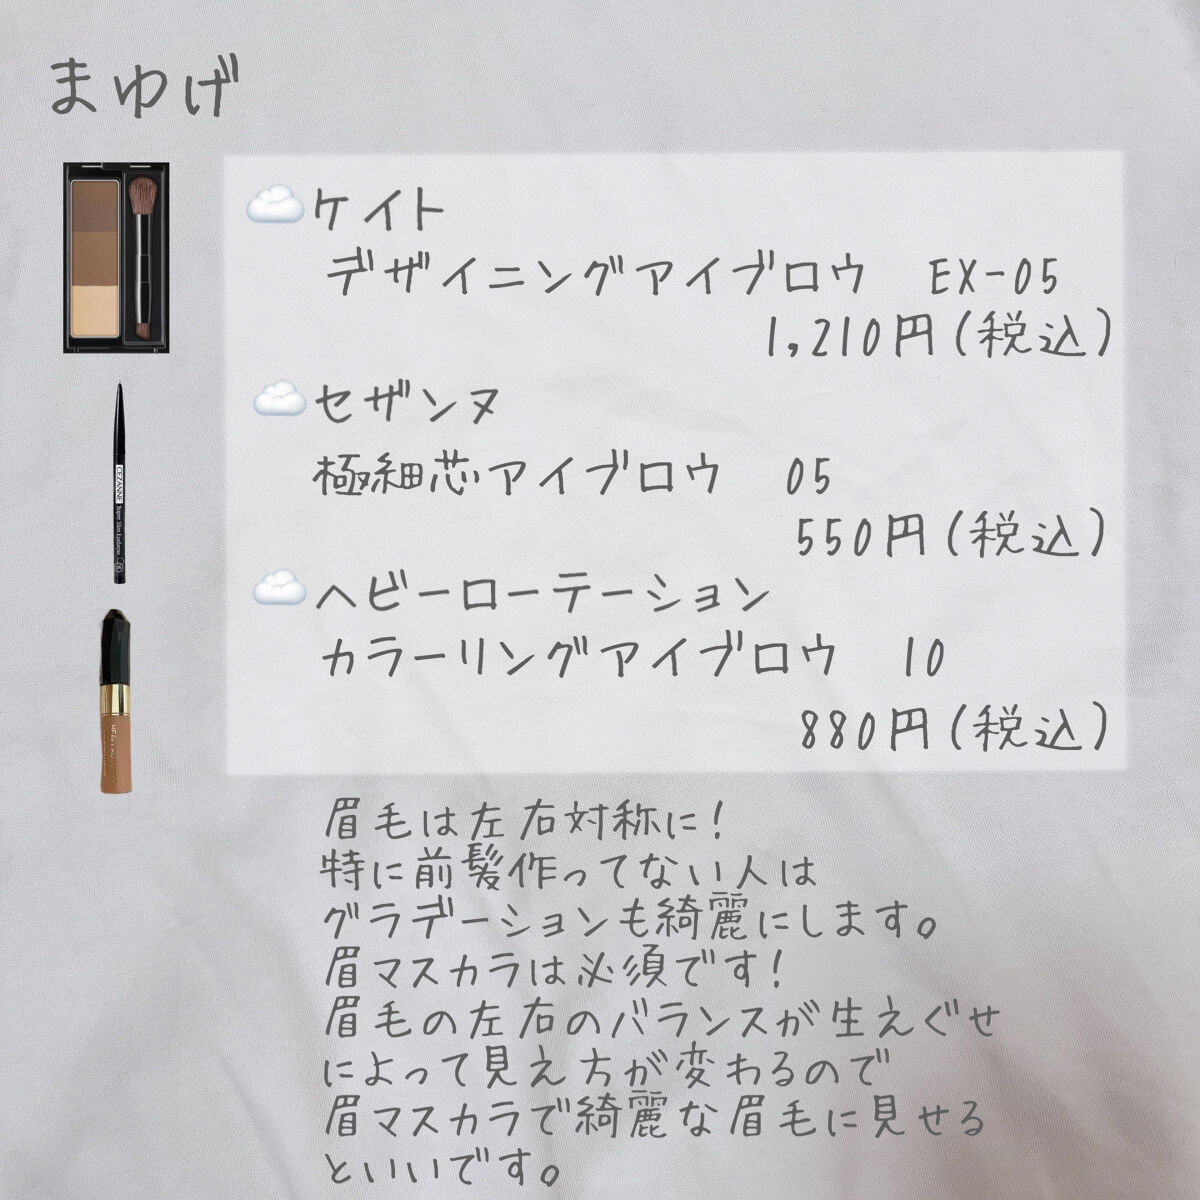 まゆげ
ケイト
デザイニングアイブロウ EX-05
1,210円(税込)
セザンヌ
極細芯アイブロウ 05
550円(税込)
CEZANNE Super Slim Eyebrow
ヘビーローテーション
カラーリングアイブロウ 10
880円(税込)
眉毛は左右対称に!
特に前髪作ってない人は
グラデーションも綺麗にします。
眉マスカラは必須です!
眉毛の左右のバランスが生えぐせ
によって見え方が変わるので
眉マスカラで綺麗な眉毛に見せる
といいです。